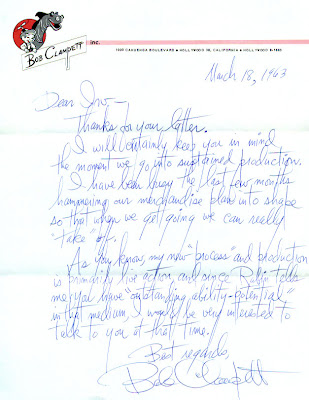 BOB CLAMPETT inc.
HOLLYWOOD 28, CALIFORNIA • HOLLYWOOD
March 18, 1963
Dear Irv—
Thanks for your letter.
I will certainly keep you in mind
the moment we go into sustained production.
I have been busy the last few months
hammering our merchandise plan into shape
so that when we get going we can really
"take" off.
As you know, my new "process" and production
is primarily live action, and since Robin tells
me you have "outstanding ability-potential"
in this medium, I would be very interested to
talk to you at that time.
Best regards,
Bob Clampett